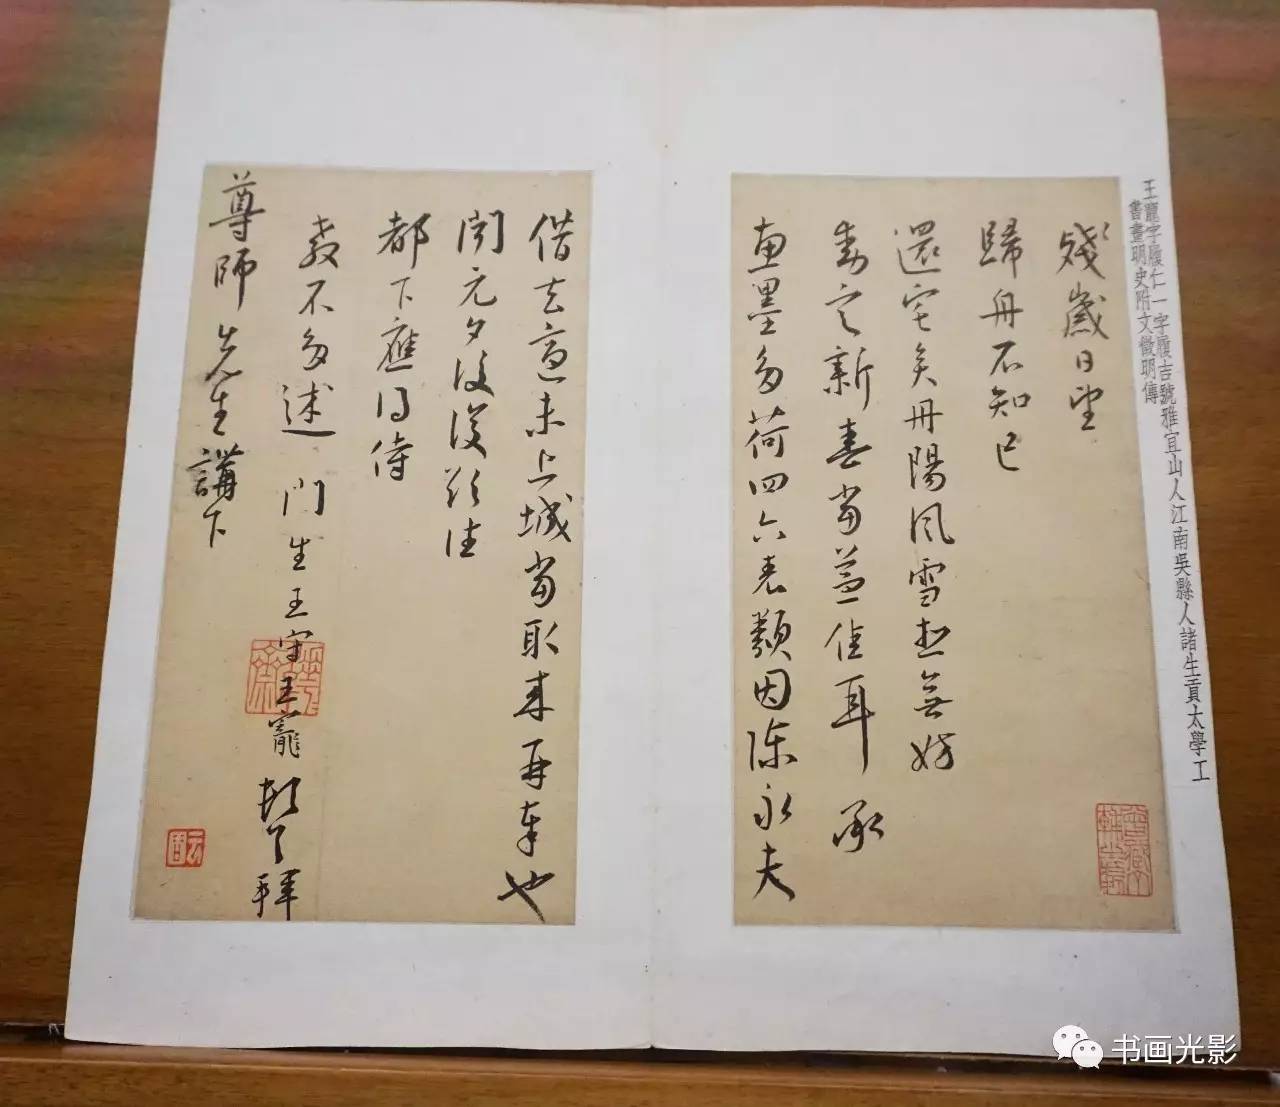 王寵字履仁一字履吉號雅宜山人江南吳縣人諸生貢太學工
書畫明史附文徵明傳
殘歲日望
歸舟不知已
還宅矣丹陽風雪想無妨
動定新春當益佳耳 承
惠墨多荷四六表類因陳永夫
借去適未上城當取來再奉也
聞元夕後復欲往
都下應得侍
教不多述 門生王守王寵頓首拜
尊師先生講下
书画光影